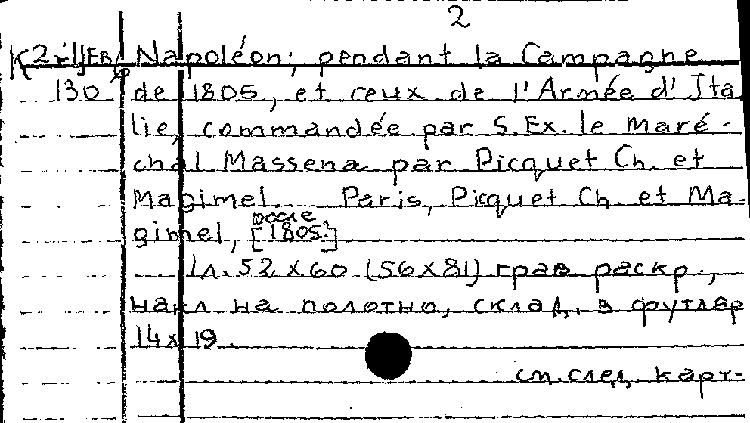 2
Napoléon; pendant la Campagne
130 de 1805, et ceux de l'Armée d'Ita
lie, commandée par S. Ex. le Maré-
chal Massena par Picquet Ch. et
Magimel. Paris, Picquet Ch. et Ma-
после
gimel, [1805.]
1л. 52 x 60 (56 x 81) грав раскр.,
накл на полотно, склад. в футляр
14 x 19.
см. след. карт-